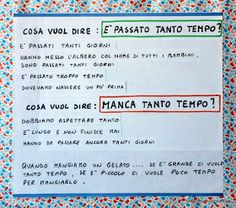 COSA VUOL DIRE: E' PASSATO TANTO TEMPO?
E' PASSATI TANTI GIORNI
HANNO MESSO L'ALBERO COL NOME DI TUTTI I BAMBINI,
SONO PASSATI TANTI GIORNI
E' PASSATO TROPPO TEMPO
DOVEVAMO NASCERE UN PO' PRIMA
COSA VUOL DIRE: MANCA TANTO TEMPO?
DOBBIAMO ASPETTARE TANTO
E' LUNGO E NON FINISCE MAI
HANNO DA PASSARE ANCORA TANTI GIORNI
QUANDO MANGIAMO UN GELATO.... SE E' GRANDE CI VUOLE
TANTO TEMPO, SE E' PICCOLO CI VUOLE POCO TEMPO
PER MANGIARLO.